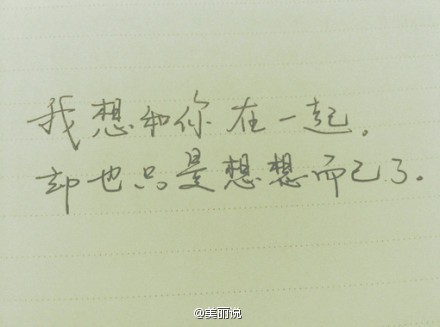 我想和你在一起。
却也只是想想而已了。
@美丽说